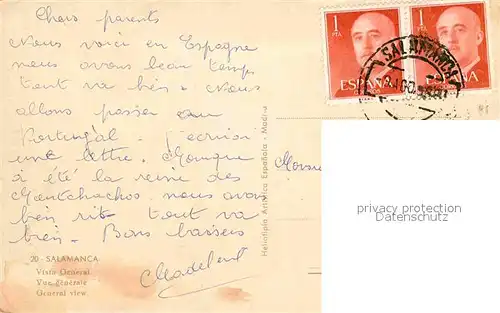 Chers parents
Nous voici en Espagne
nous avons beau temps
tout va bien. Nous
allons passer au
Portugal. J'ecrirai
une lettre. Monique
a été la reine des
nous avons
bien rit. tout va
bien. Bons baisers
20 - SALAMANCA
Vista General
Vue générale
General view
Heliotipia Artística Española - Madrid
1 PTA
ESPAÑA
1 PTA
ESPAÑA
SALAMANCA
privacy protection
Datenschutz